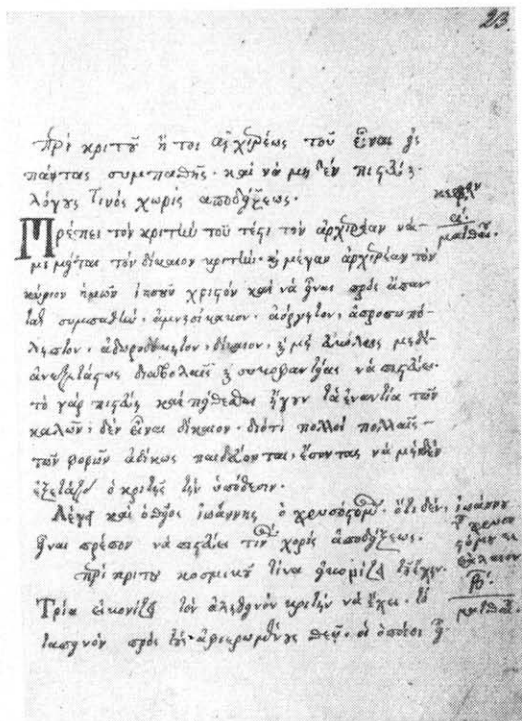 23
περὶ κριτοῦ ἤ τοι ἀρχιερέως τοῦ εἶναι εἰς
πάντας συμπαθής. καὶ νὰ μηδὲν πιστεύῃ
λόγους τινὸς χωρὶς ἀποδείξεως.
κεφάλαιον
α΄.
ματθαίου
Πρέπει τὸν κριτὴν τοῦ τέστι τὸν ἀρχιερέαν νὰ
μιμῆται τὸν δίκαιον κριτὴν. καὶ μέγαν ἀρχιερέαν τὸν
κύριον ἡμῶν ἰησοῦν χριστόν καὶ νὰ ἦναι πρὸς ἅπαν
τας συμπαθὴν, ἀμνησίκακον, ἀόργητον, ἀπροσωπό
ληπτον, ἀδωροδόκητον, δίκαιον, καὶ μὲ
διαβολαῖς καὶ συκοφαντίας νὰ πιστεύει.
τὸ γὰρ πιστεύειν καὶ πείθεσθαι ἤγουν τὰ ἐναντία τῶν
καλῶν, δὲν εἶναι δίκαιον. διότι πολλοὶ πολλαῖς
τῶν φορῶν ἀδίκως παιδεύονται, ἔσοντας νὰ μηδὲν
ἐξετάζῃ ὁ κριτὴς τὴν ὑπόθεσιν.
Λέγει καὶ ὁ θεῖος ἰωάννης ὁ χρυσόστομος. ὅτι δὲν
ἦναι πρέπον νὰ πιστεύει τινὰς χωρὶς ἀποδείξεως.
ἰωάννου
τοῦ χρυσο
στόμου κε
φάλαιον
β΄.
ματθαίου
περὶ κριτοῦ κοσμικοῦ τίνα
Τρία εἰκονίζει τὸν ἀληθινὸν κριτὴν νὰ ἔχει.
ταπεινὸν πρὸς τοὺς ἀφιερωμένους θεῷ. οἱ ὁποῖοι